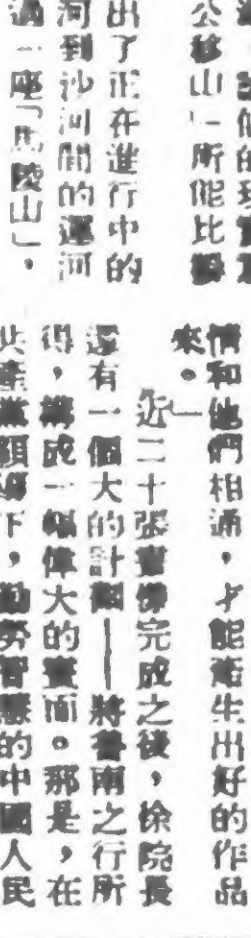 公移山」所能比擬
出了正在進行中的
河到沙河間的運河
過一座「馬陵山」，
情和他們相通，才能產生出好的作品
來。」
近二十張畫像完成之後，徐院長
還有一個大的計劃——將魯南之行所
得，構成一幅偉大的畫面。那是，在
共產黨領導下，勤勞智慧的中國人民